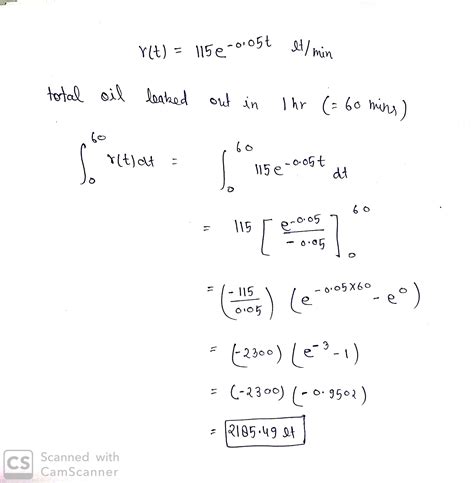 r(t) = 115e^-0.05t lt/min
total oil leaked out in 1 hr (= 60 mins)
∫₀^60 r(t)dt = ∫₀^60 115e^-0.05t dt
= 115 [e^-0.05 / -0.05]₀^60
= (-115/0.05) (e^-0.05×60 - e^0)
= (-2300) (e^-3 - 1)
= (-2300) (-0.9502)
= 2185.49 lt
CS Scanned with
CamScanner